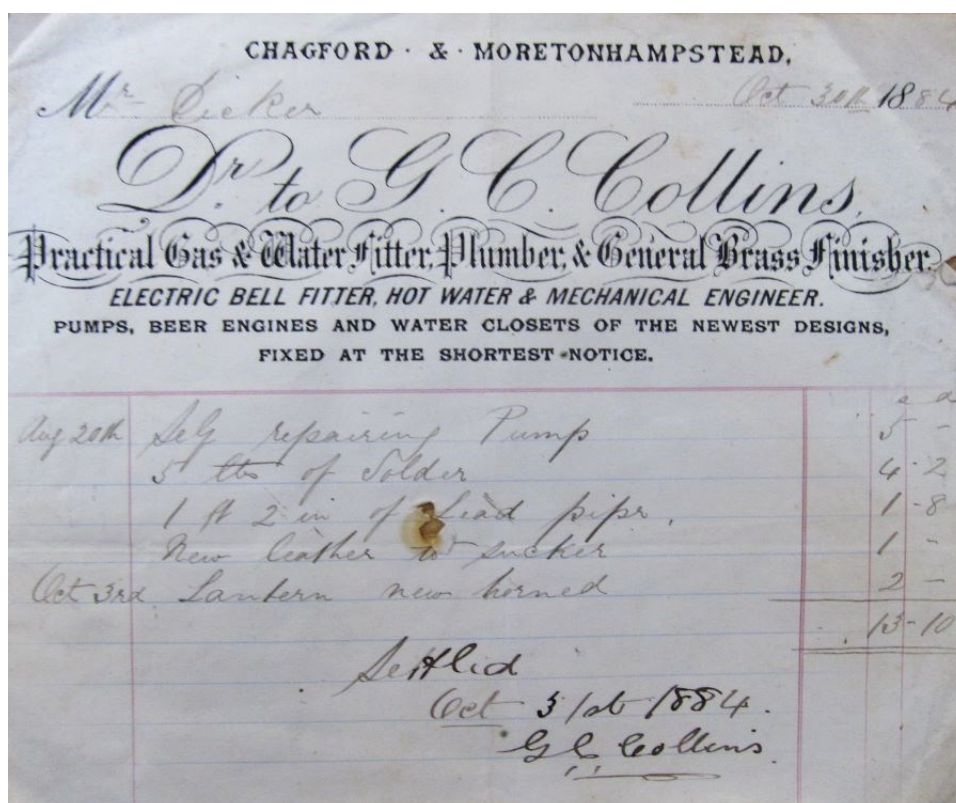 CHAGFORD · & · MORETONHAMPSTEAD,
Mr Dicker Oct 30th 1884
Dr. to G. C. Collins,
Practical Gas & Water Fitter, Plumber, & General Brass Finisher.
ELECTRIC BELL FITTER, HOT WATER & MECHANICAL ENGINEER.
PUMPS, BEER ENGINES AND WATER CLOSETS OF THE NEWEST DESIGNS,
FIXED AT THE SHORTEST NOTICE.
s d
Aug 20th repairing Pump 5 -
5 lbs of Solder 4 - 2
1 ft 2 in of Lead pipe, 1 - 8
New leather to sucker 1 -
Oct 3rd Lantern new horned 2 -
13 - 10
Settled
Oct 31st 1884.
G C Collins